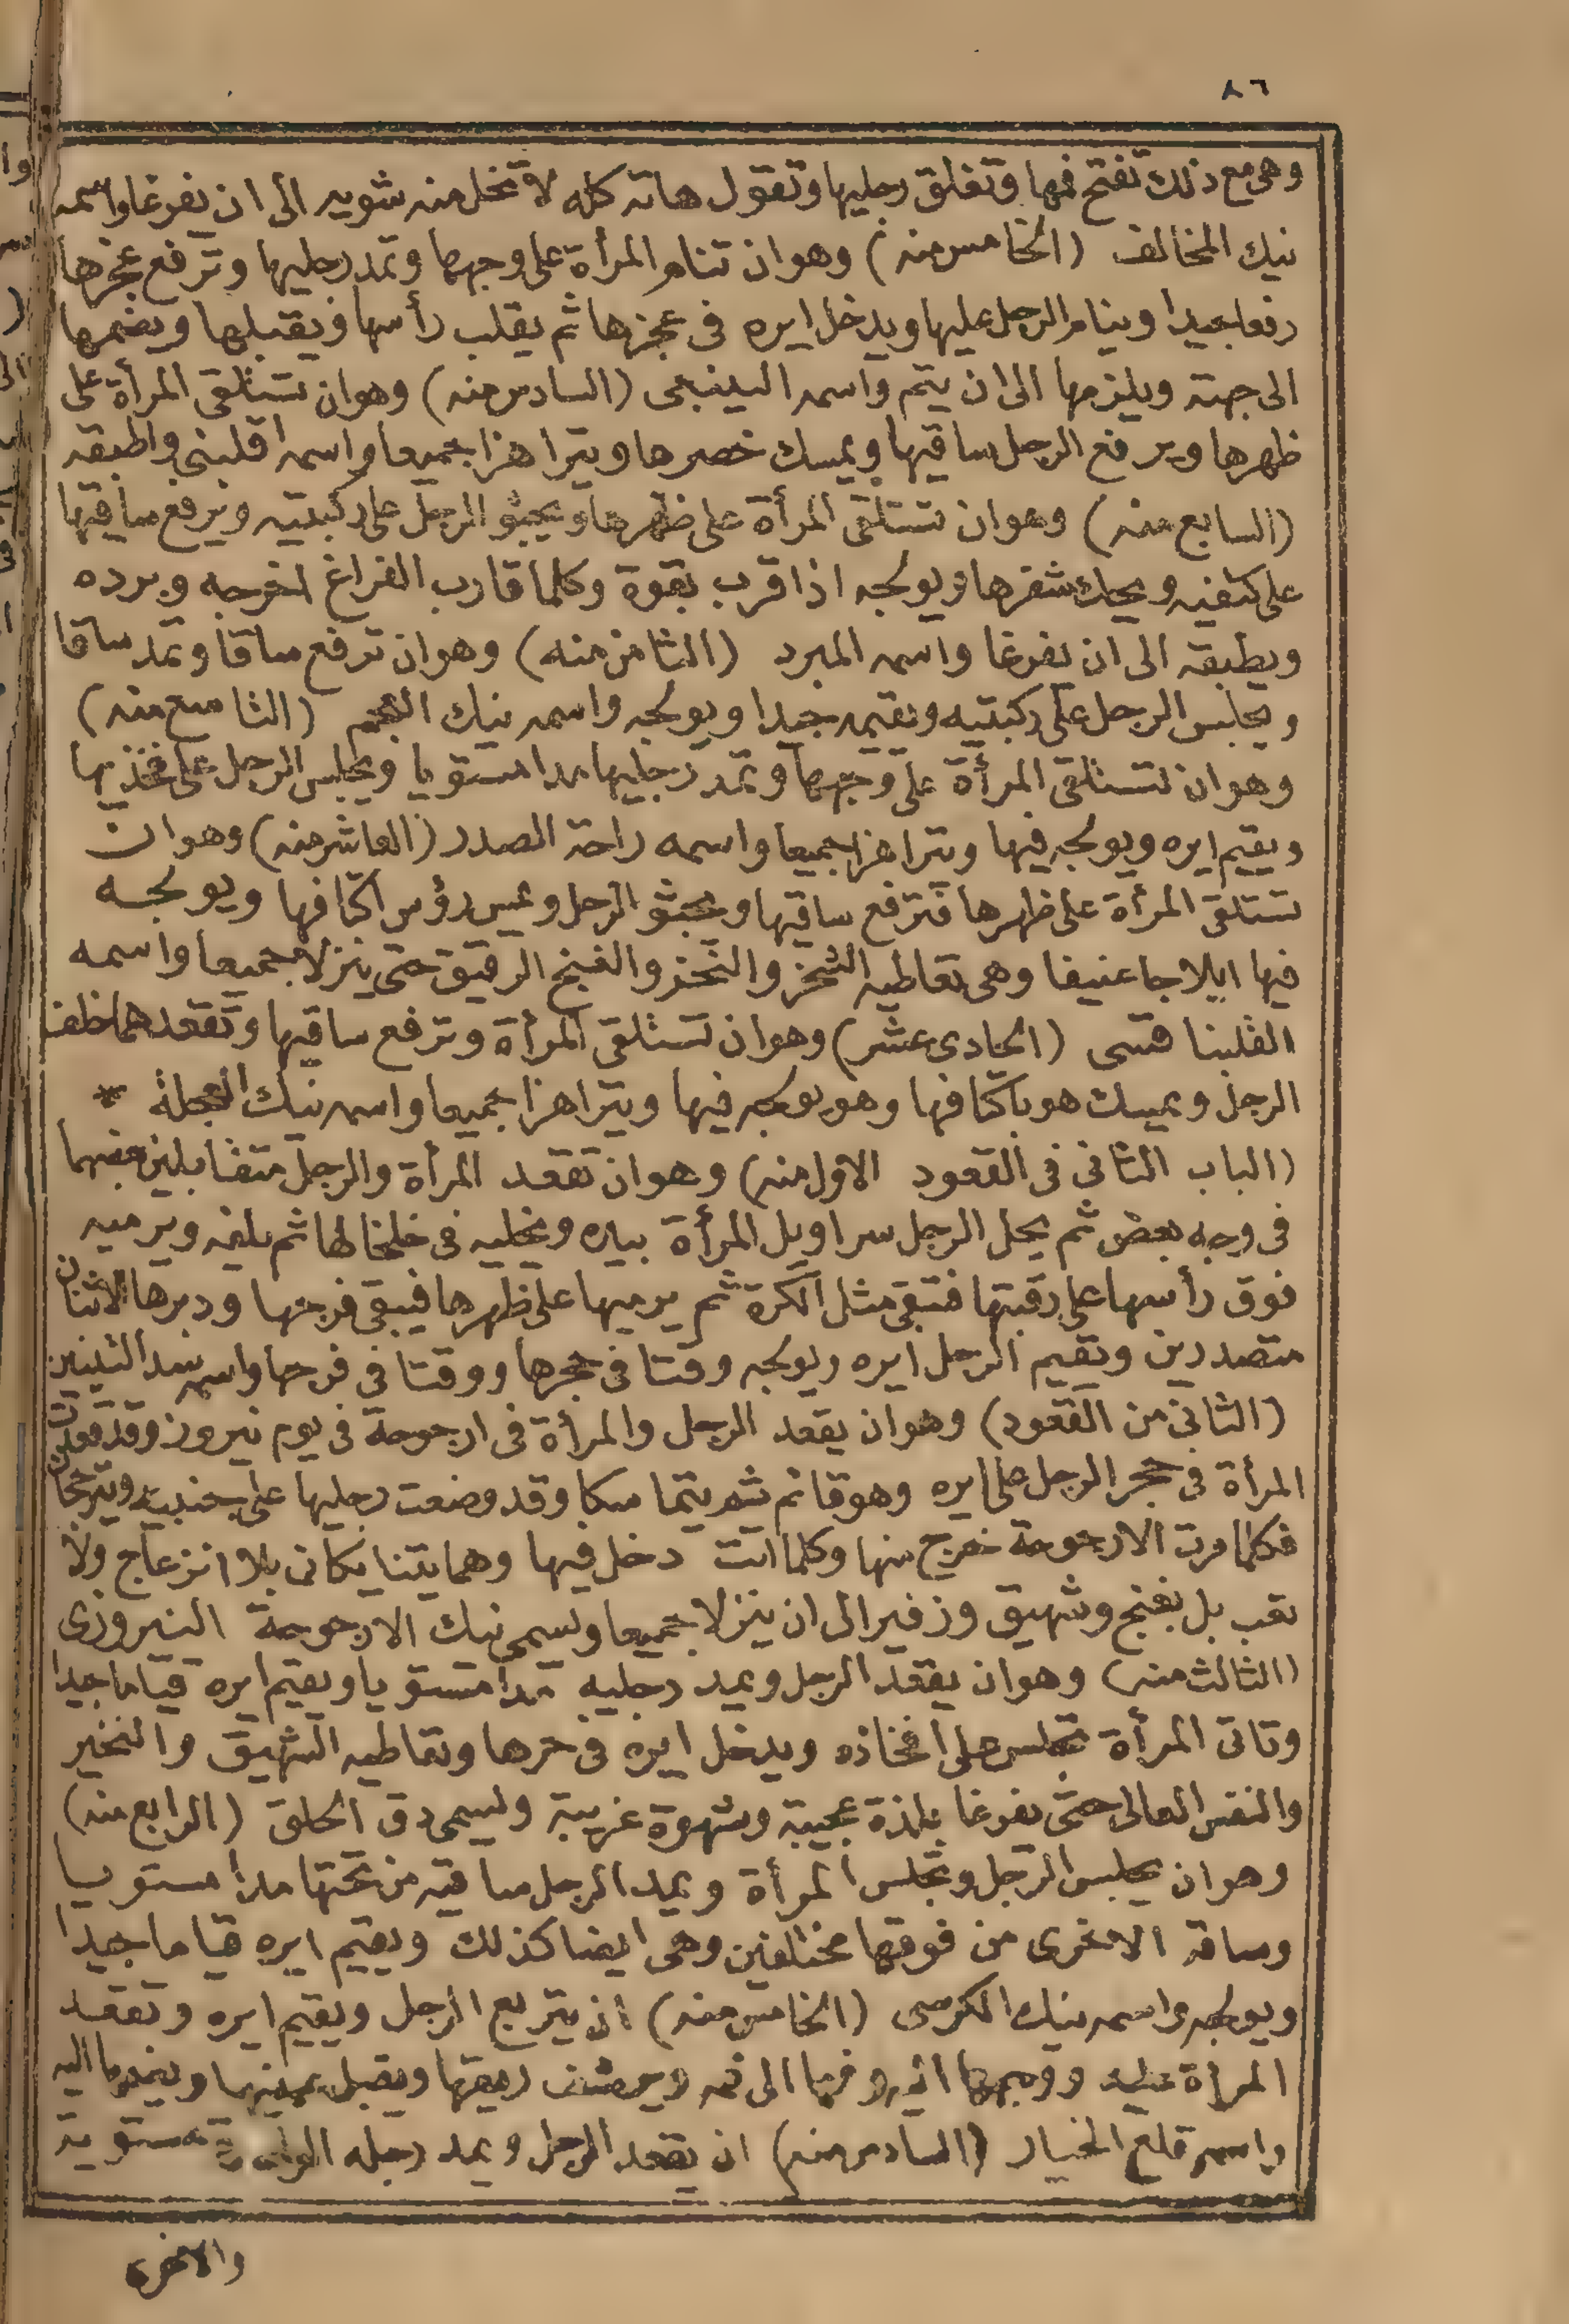 ٨٦
وهى مع ذلك تفتح فمها وتغلق رجليها وتقول هاته كله لا تخل منه شويه الى ان يفرغا واسمه
نيك المخالف (الخامس منه) وهو ان تنام المرأة على وجهها وتمد رجليها وترفع عجزها
رفعا جيدا وينام الرجل عليها ويدخل ايره فى عجزها ثم يقلب رأسها ويقبلها ويضمها
الى جهته ويلزمها الى ان يتم واسمه (السادس منه) وهو ان تستلقى المرأة على
ظهرها ويرفع الرجل ساقيها ويمسك خصرها ويتراهزا جميعا واسمه اقلبنى واطبقه
(السابع منه) وهو ان تستلقى المرأة على ظهرها ويجثو الرجل على ركبتيه ويرفع ساقيها
على كتفيه ويحك شفرها ويولجه اذا قرب بقوة وكلما قارب الفراغ اخرجه وبرده
ويطبقه الى ان يفرغا واسمه المبرد (الثامن منه) وهو ان ترفع ساقا وتمد ساقا
ويجلس الرجل على ركبتيه ويقيمه جيدا ويولجه واسمه نيك العجم (التاسع منه)
وهو ان تستلقى المرأة على وجهها وتمد رجليها مدا مستويا ويجلس الرجل على فخذيها
ويقيم ايره ويولجه فيها ويتراهزا جميعا واسمه راحة الصدر (العاشر منه) وهو ان
تستلقى المرأة على ظهرها فترفع ساقيها ويجثو الرجل ويمس رؤس اكتافها ويولجه
فيها ايلاجا عنيفا وهى تعاطيه الشخر والنخر والغنج الرقيق حتى ينزلا جميعا واسمه
(الحادى عشر) وهو ان تستلقى المرأة وترفع ساقيها وتقعدهما خلف
الرجل ويمسك هو باكتافها وهو يولجه فيها ويتراهزا جميعا واسمه نيك العجلة *
(الباب الثانى فى القعود الاول منه) وهو ان تقعد المرأة والرجل متقابلين
فى وجه بعض ثم يحل الرجل سراويل المرأة بيده ويخليه فى خلخالها ثم يلفه ويرميه
فوق رأسها على رقبتها فتبقى مثل الكرة ثم يرميها على ظهرها فيبقى فرجها ودبرها الاثنان
متصددين ويقيم الرجل ايره ويولجه وقتا فى حجرها ووقتا فى فرجها واسمه
(الثانى من القعود) وهو ان يقعد الرجل والمرأة فى ارجوحة فى يوم نيروز وقد قعدت
المرأة فى حجر الرجل على ايره وهو قائم ثم يتماسكا وقد وضعت رجليها على جنبيه ويترجحان
فكلما مرت الارجوحة خرج منها وكلما اتت دخل فيها وهما يتنايكان بلا انزعاج ولا
تعب بل بغنج وشهيق وزفير الى ان ينزلا جميعا ويسمى نيك الارجوحة النيروزى
(الثالث منه) وهو ان يقعد الرجل ويمد رجليه مدا مستويا ويقيم ايره قياما جيدا
وتاتى المرأة تجلس على افخاذه ويدخل ايره فى حرها وتعاطيه الشهيق والنخير
والنفس العالى حتى يفرغا بلذة عجيبة وشهوة غريبة ويسمى دق الحلق (الرابع منه)
وهو ان يجلس الرجل وتجلس المرأة ويمد الرجل ساقيه من تحتها مدا مستويا
وساقه الاخرى من فوقها مختلفين وهى ايضا كذلك ويقيم ايره قياما جيدا
ويولجه واسمه نيك الكرسى (الخامس منه) ان يتربع الرجل ويقيم ايره وتقعد
المرأة عليه ووجهها اليه وفمها الى فمه ويرشف ريقها ويقبل عينيها ويضمها اليه
واسمه قلع الخيار (السادس منه) ان يقعد الرجل ويمد رجله الواحدة مستوية
والاخرى